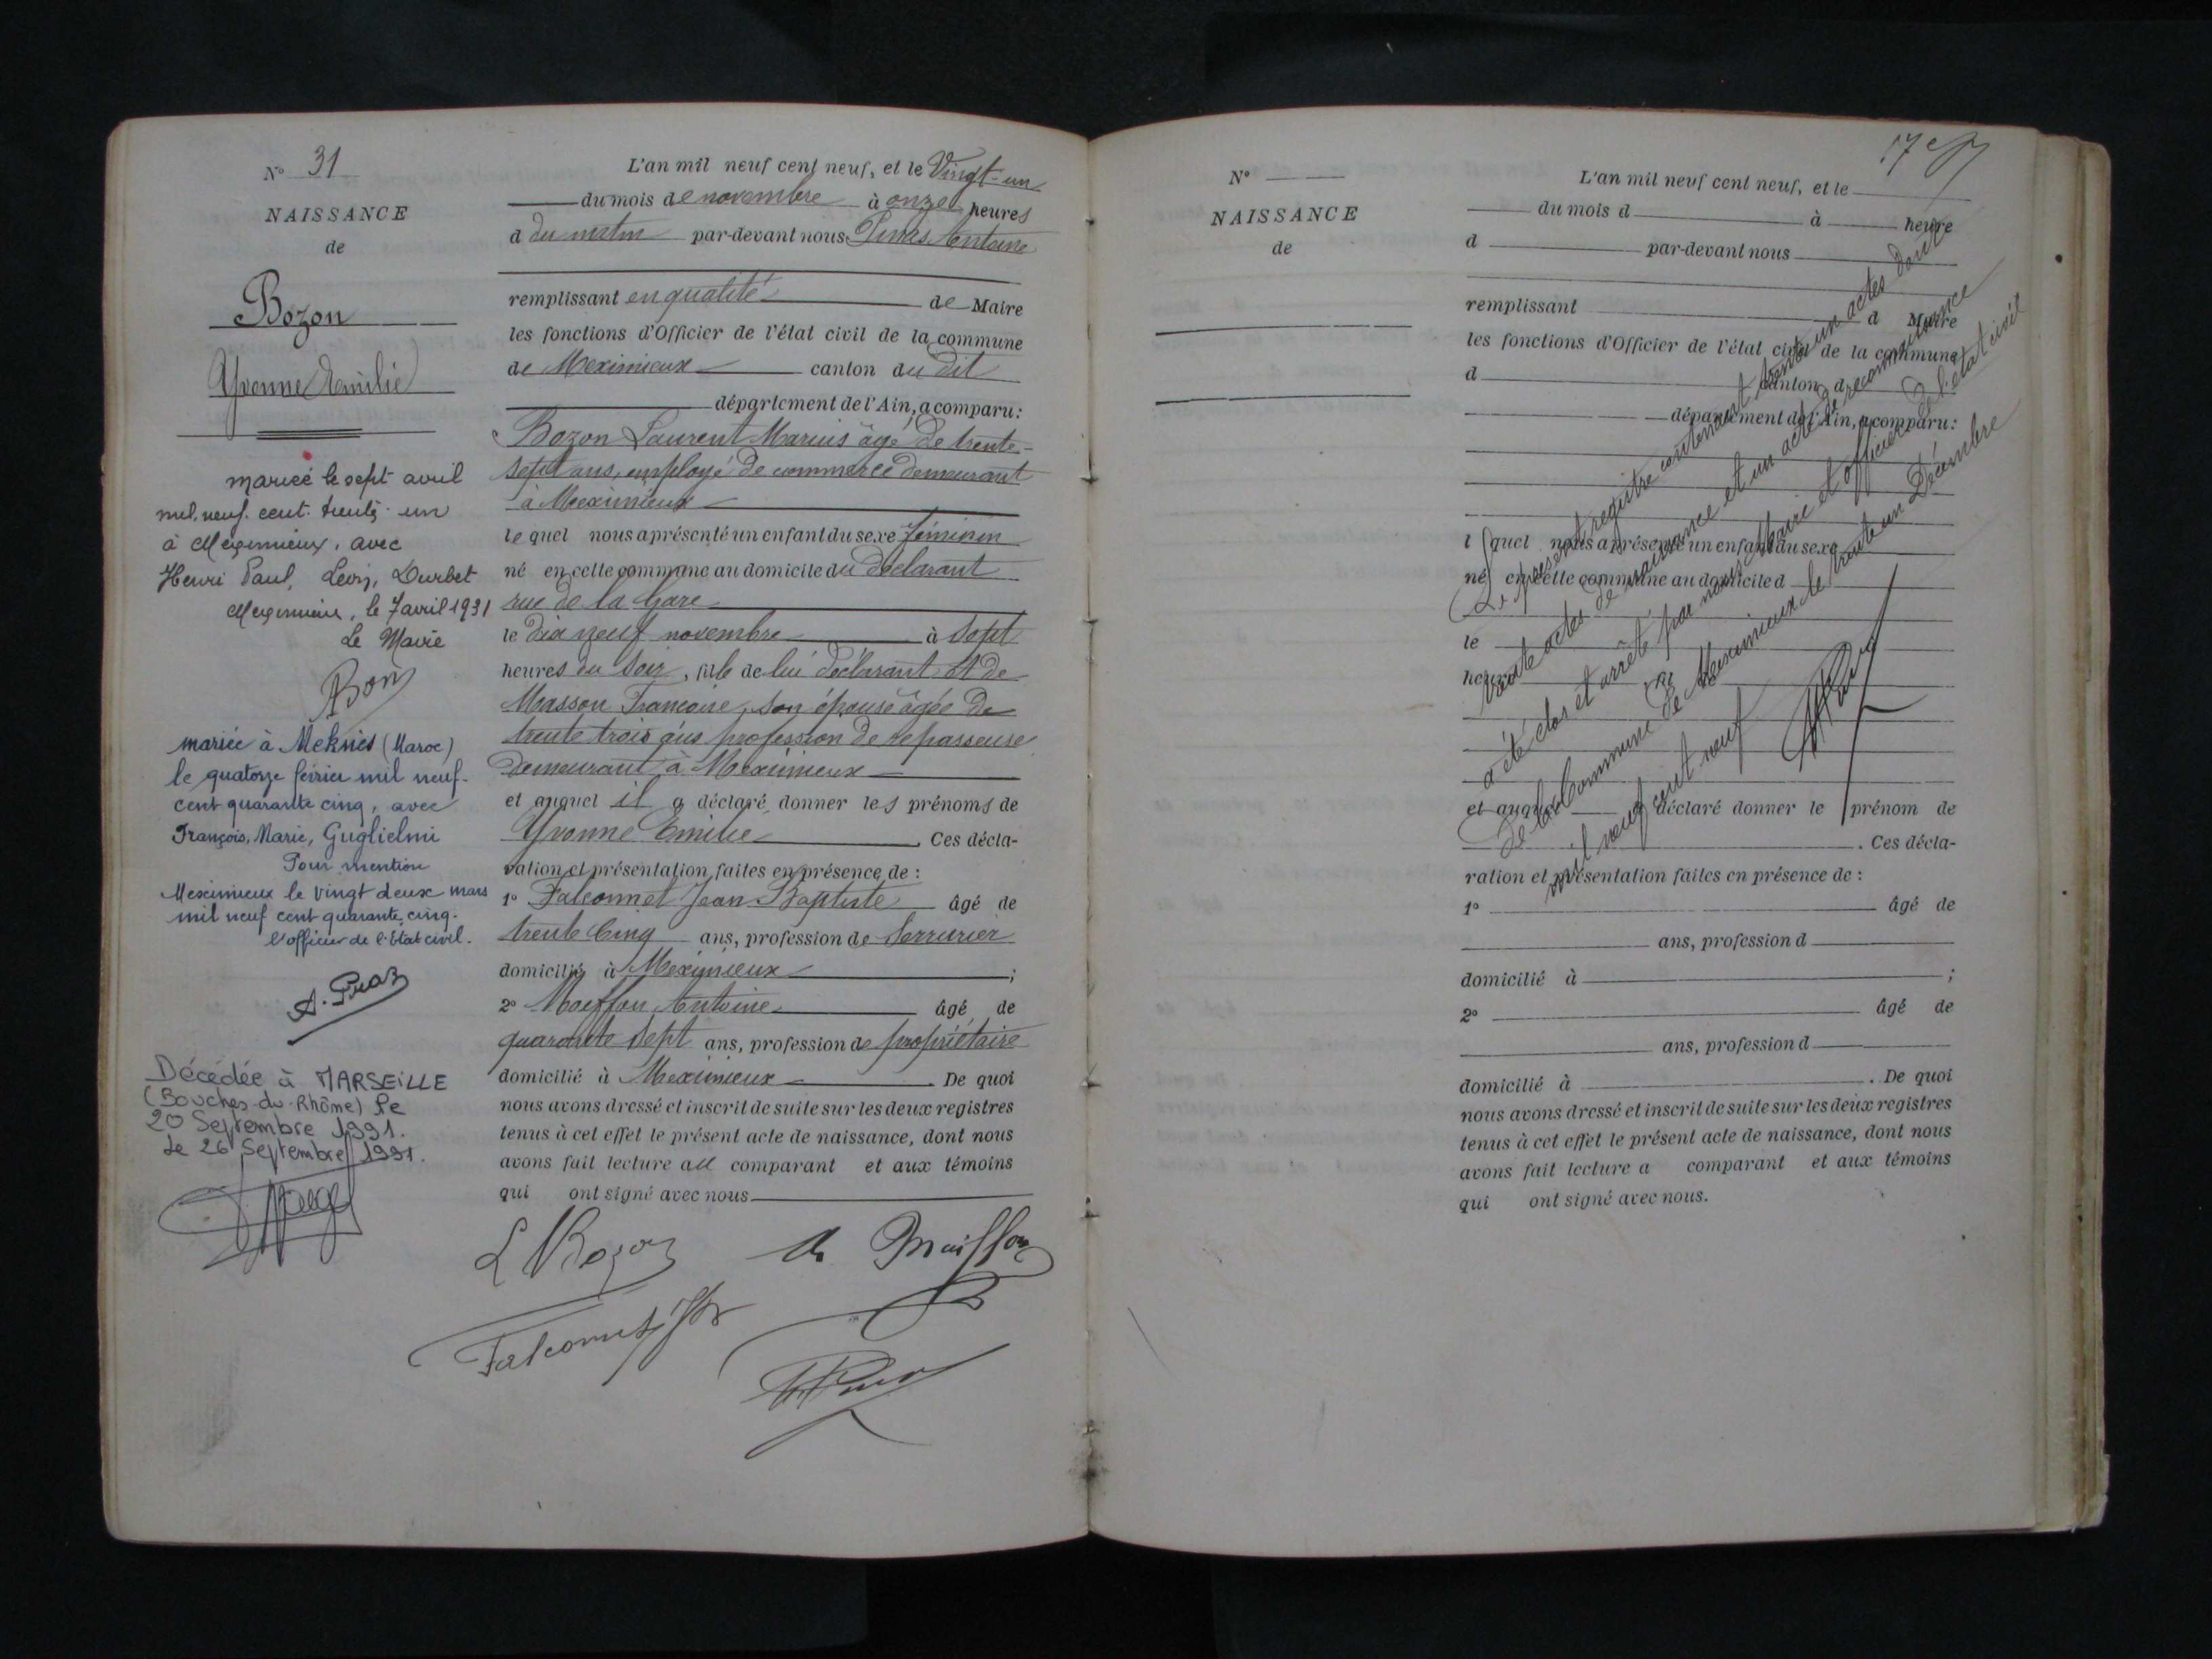 N° 31
NAISSANCE
de
Bozon
Yvonne Emilie
mariée le sept avril
mil. neuf. cent. trente. un
à Meximieux, avec
Henri Paul, Durbet
Meximieux, le 7 avril 1931
Le Maire
Bon
mariée à Meknès (Maroc)
le quatorze février mil neuf-
cent quarante cinq, avec
François, Marie, Guglielmi
Pour mention
Meximieux le vingt deux mars
mil neuf cent quarante cinq.
l'officier de l'Etat civil.
Décédée à MARSEILLE
(Bouches-du-Rhône) le
20 Septembre 1991.
Le 26 Septembre 1991.
L'an mil neuf cent neuf, et le Vingt-un
du mois de novembre à onze heures
d du matin par-devant nous Antoine
remplissant en qualité de Maire
les fonctions d'Officier de l'état civil de la commune
de Meximieux canton du dit
département de l'Ain, a comparu:
Bozon Laurent Marius âgé de trente-
sept ans, employé de commerce demeurant
à Meximieux
lequel nous a présenté un enfant du sexe féminin
né en cette commune au domicile du déclarant
rue de la Gare
le dix neuf novembre à Sept
heures du soir, fille de lui déclarant et de
Masson Francoise, son épouse âgée de
trente trois ans profession de repasseuse
demeurant à Meximieux
et auquel il a déclaré donner les prénoms de
Yvonne Emilie. Ces décla-
ration et présentation faites en présence de :
1° Falconnet Jean Baptiste âgé de
trente cinq ans, profession de Serrurier
domicilié à Meximieux ;
2° Moiffon Antoine âgé de
quarante sept ans, profession de propriétaire
domicilié à Meximieux. De quoi
nous avons dressé et inscrit de suite sur les deux registres
tenus à cet effet le présent acte de naissance, dont nous
avons fait lecture au comparant et aux témoins
qui ont signé avec nous
L Bozon
Falconnet
17e
N°
NAISSANCE
de
L'an mil neuf cent neuf, et le
du mois d à heure
d par-devant nous
remplissant d Maire
les fonctions d'Officier de l'état civil de la commune
d canton d
département de l'Ain, a comparu:
l quel nous a présenté un enfant du sexe
né en cette commune au domicile d
le
heure
et auquel déclaré donner le prénom de
. Ces décla-
ration et présentation faites en présence de :
1° âgé de
ans, profession d
domicilié à ;
2° âgé de
ans, profession d
domicilié à . De quoi
nous avons dressé et inscrit de suite sur les deux registres
tenus à cet effet le présent acte de naissance, dont nous
avons fait lecture a comparant et aux témoins
qui ont signé avec nous.
Le présent registre contenant trente un actes dont
trente actes de naissance et un acte de reconnaissance
a été clos et arrêté par nous Maire et officier de l'état civil
de la Commune de Meximieux le trente un Décembre
mil neuf cent neuf